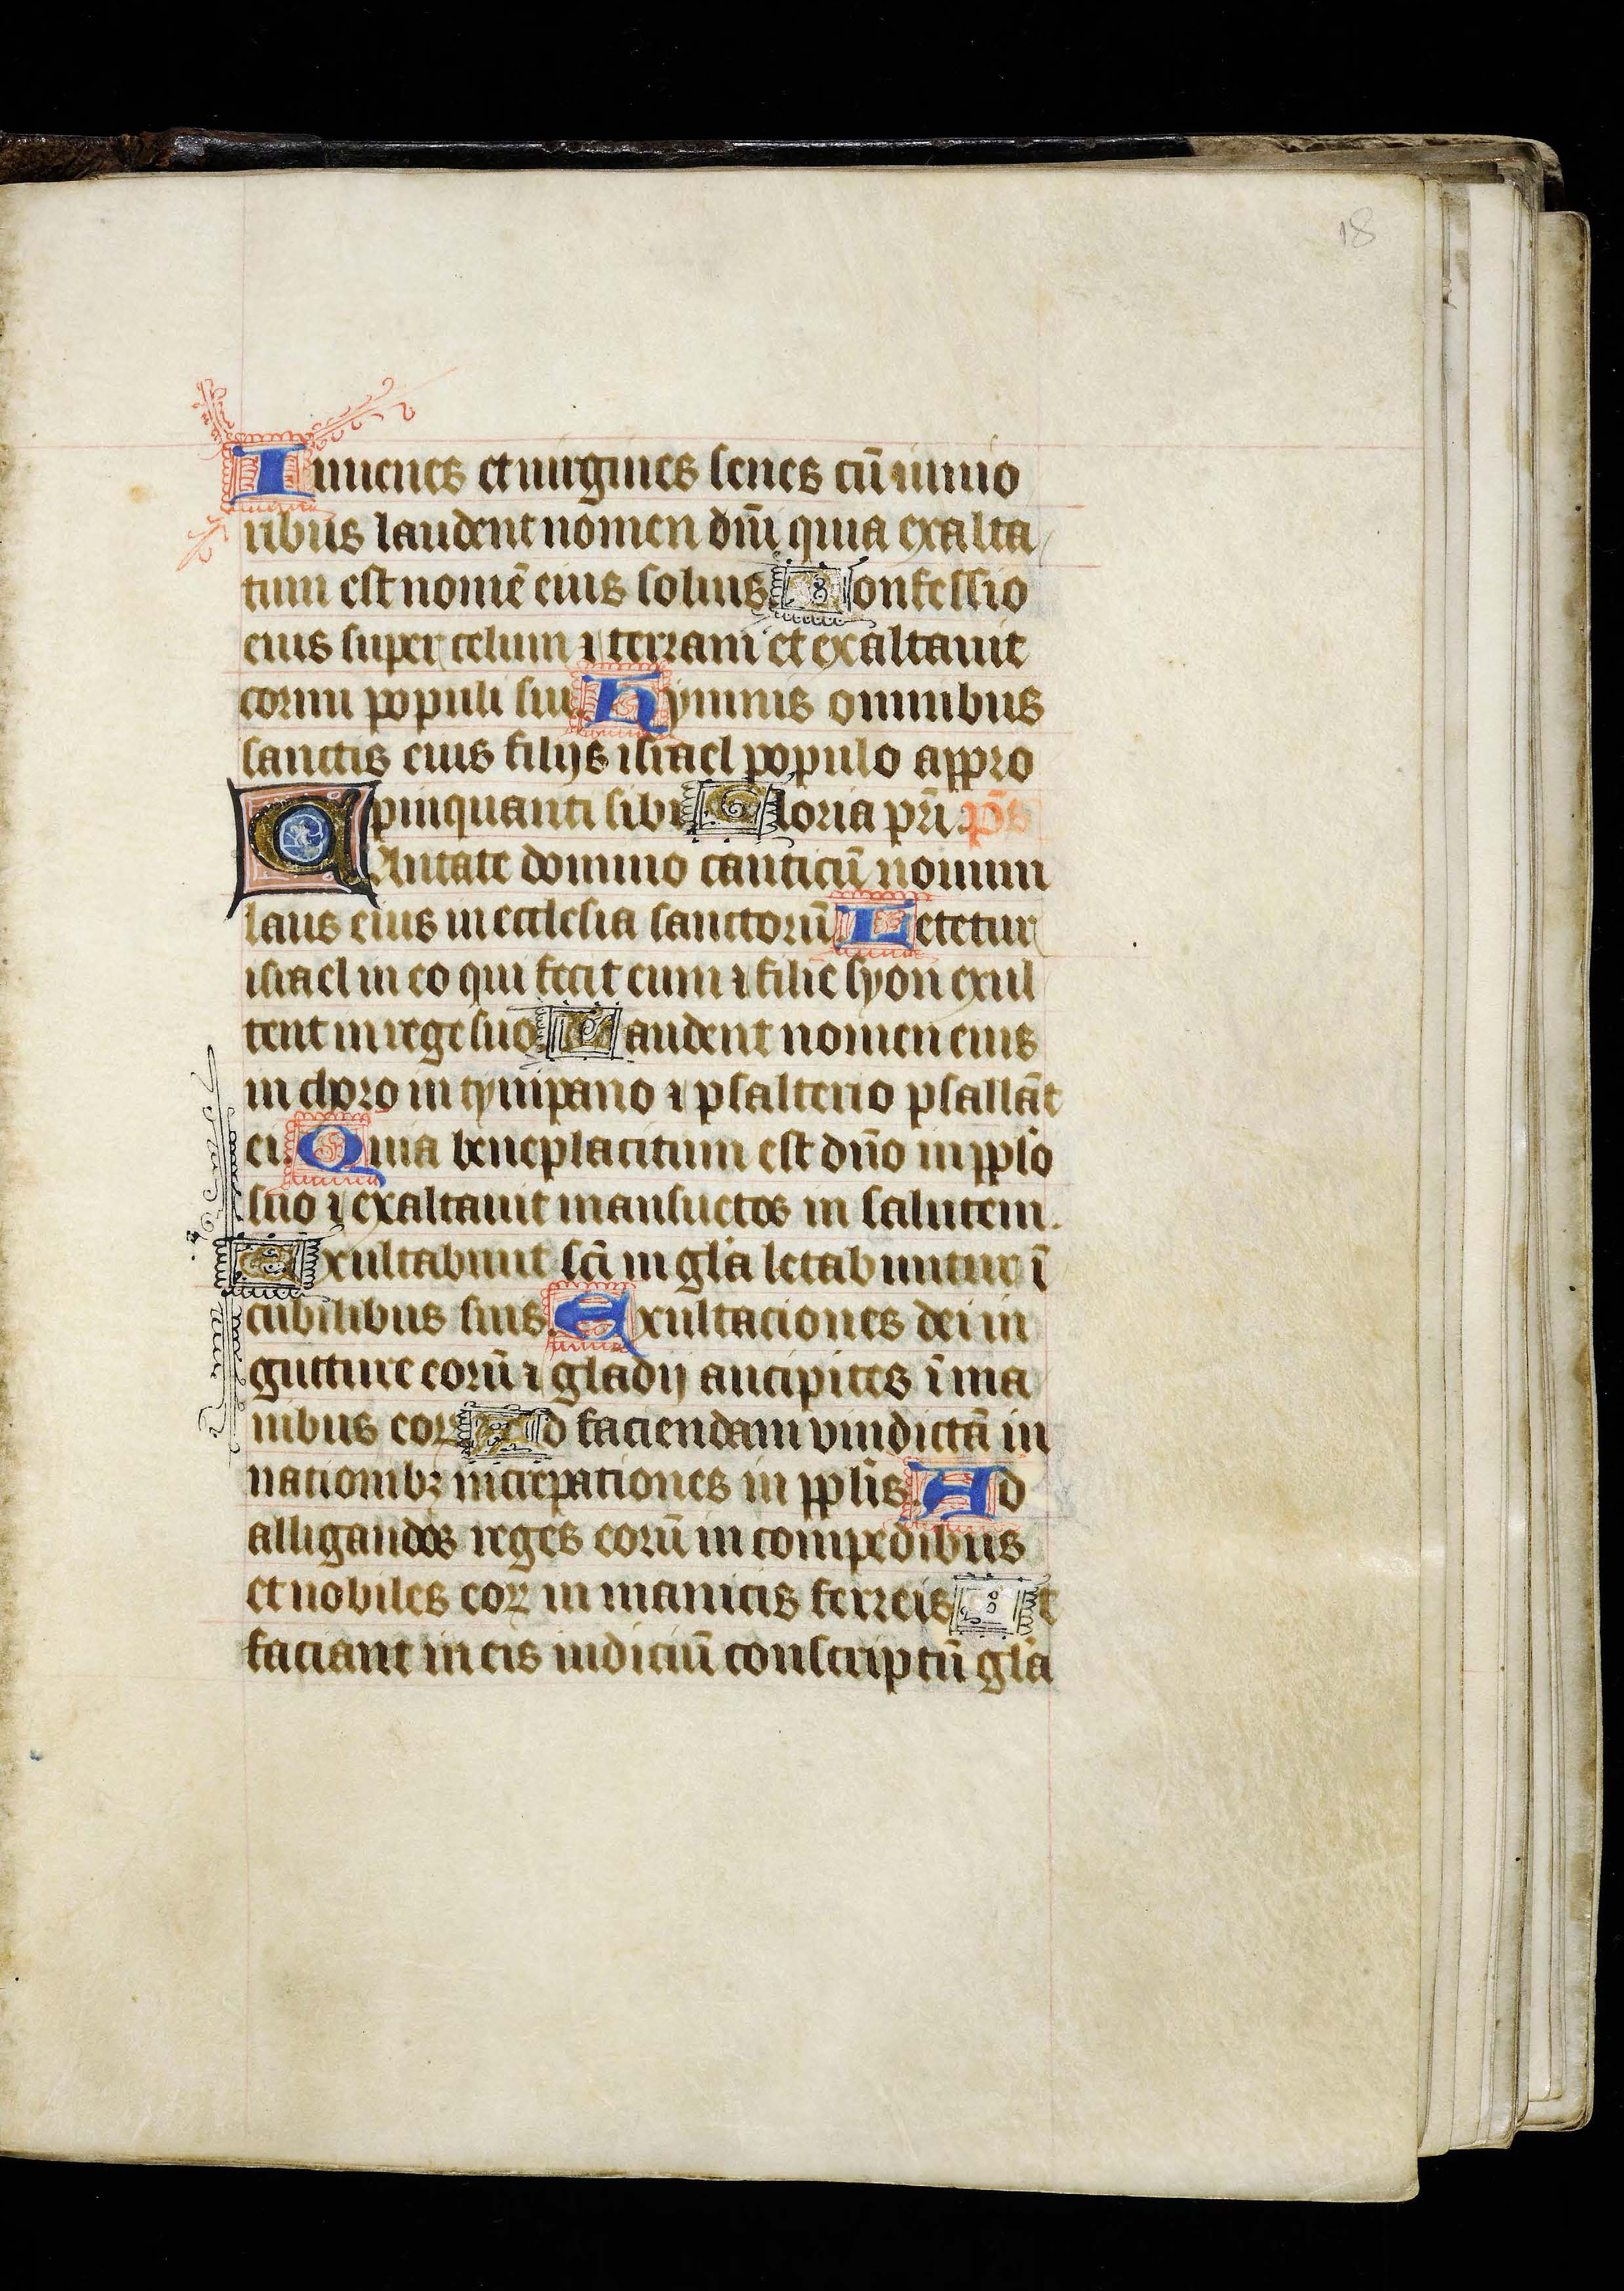 18
Iuuenes et uirgines senes cū iunio
ribus laudent nomen dn̄i quia exalta
tum est nomē eius solius. Confessio
eius super celum ⁊ terram et exaltauit
cornu populi sui. Hymnis omnibus
sanctis eius filijs israel populo appro
pinquanti sibi. Gloria pr̄i. p̄s
Cantate domino canticū nouum
laus eius in ecclesia sanctorū. Letetur
israel in eo qui fecit eum ⁊ filie syon exul
tent in rege suo. Laudent nomen eius
in choro in tympano ⁊ psalterio psallāt
ei. Quia beneplacitum est dn̄o in pplo
suo ⁊ exaltauit mansuetos in salutem.
Exultabunt sc̄i in gl̄a letabuntur ī
cubilibus suis. Exultaciones dei in
gutture eorū ⁊ gladij ancipites ī ma
nibus eoꝝ. Ad faciendam vindictā in
nationibꝫ increpationes in pplis. Ad
alligandos reges eorū in compedibus
et nobiles eoꝝ in manicis ferreis. Ut
faciant in eis iudiciū conscriptū gl̄a